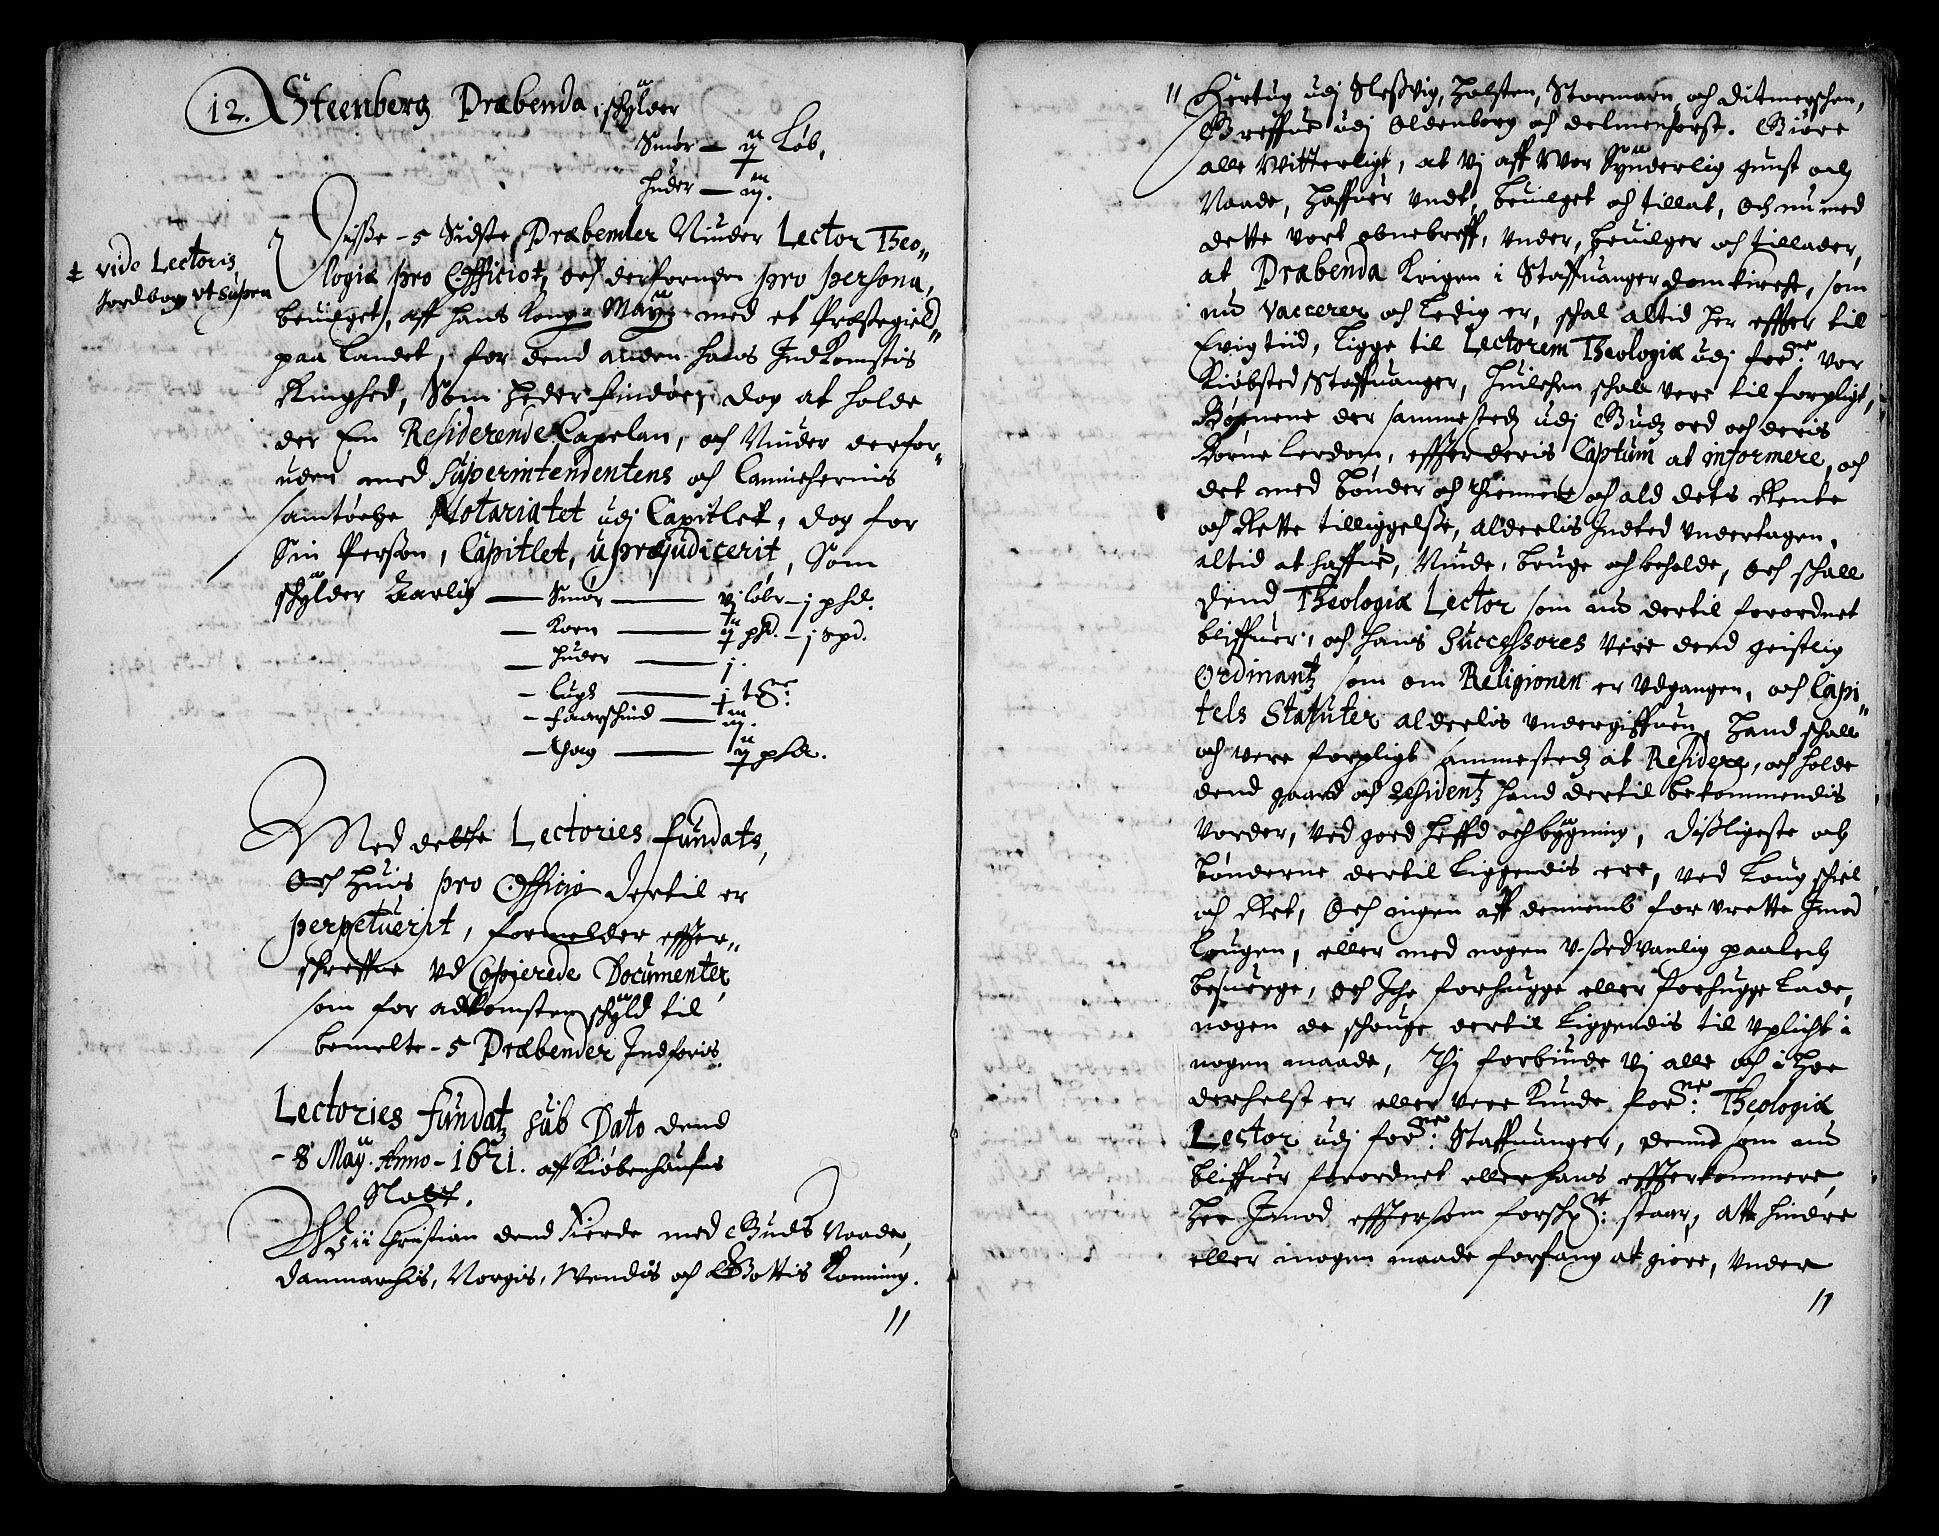 12. Steenberg Præbenda, schÿlder
Smør — ij Løb,
Huder — iij.
Disse - 5 Sidste Præbender Niuder Lector Theo„
logiæ pro Officio ‡, och derforuden pro persona,
‡ vide Lectoris
Jordbog vt supra
beuilget, aff hans Kong: Maÿ: med et Præstegield„
paa Landet, for dend anden hans Indkomstis
Ringhed, Som heder Findøe, dog at holde
der En Residerende Capelan, och Niuder derfor„
uden med Superintendentens och Cannichernis
samtøche Notariatet udj Capitlet, dog for
Sin Person, Capitlet, upræjudicerit, Som
schÿlder Aarlig — Smør — vj løbr – j phd.
— Korn — ij phd. – j spd.
— Huder — j.
— Lugs — j t
— Faarschind — iij.
— — ij phd.
Med dette Lectories Fundats,
Och Huis pro Officio dertil er
perpetuerit, formelder effter„
schreffne vd Copierede Documenter
som for adkomsten schÿld til
bemelte - 5 Præbender Indføris.
Lectories Fundatz sub Dato dend
- 8 Maÿ. Anno - 1621. aff Kiøbenhaufns
Slott.
Wii Christian dend Fierde med Guds Naade,
Danmarchis, Norgis, Wendis och Gottis Konning.
//
// Hertug udj Slesvig, Holsten, Stormarn och Ditmerschen,
Greffue udj Oldenborg och Delmenhorst. Giøre
alle Witterligt, at Vj aff Wor Sÿnderlig gunst och
Naade, Haffuer undt, beuilget och tillat, Och nu med
dette vort obnebreff, under, beuilger och tillader,
at Præbenda Krigen i Staffuanger domkirche, som
nu Vaccerer och Ledig er, schal altid her effter til
Evig tiid, Ligge til Lectorem Theologiæ udj forne: vor
Kiøbsted Staffuanger, Huilchen schal vere til forpligt,
Bøgnene der sammestedz udj Gudz ord och deris
Børne Lerdom, effter deris Captum at informere, och
det med bønder och thiennere och ald dets Rente
och Rette tilliggelse, alderlis Indted undertagen,
altid at haffue, Niude, bruge och beholde, Och schall
Dend Theologiæ Lector som nu dertil forordnet
bliffuer, och hans Successores vere dend geistlig
Ordinantz som om Religionen er Udgangen, och Capi„
tels Statuter alderlis undergiffuen, Hand schall
och vere forpligt sammestedz at Residere, och holde
dend gaard och Residentz hand dertil bekommendis
Vorder, ved goed Heffd och bÿgning, disligeste och
bønderne dertil Liggendis ere, ved Loug schiel
och Ret, Och ingen aff dennemb for vrette Imod
Lougen, eller med nogen v-sedvanlig paalech
besuerge, och Iche forhugge eller forhugge Lade,
nogen de schouge dertil Liggendis til vplicht i
nogen maade, Thj forbiude Vj alle och i Hoe
derhelst er eller vere Kunde forne: Theologiæ
Lector udj forne: Staffuanger, dennd som nu
bliffuer forordnet eller hans effterkommere,
Her Imod efftersom forschr: staar, att hindre
eller i nogen maade forfang at giøre, Under
//